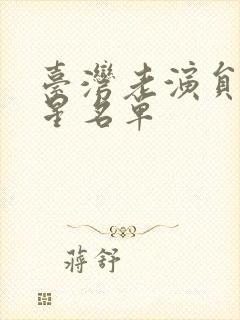 臺灣老演員
星名單
蔣舒